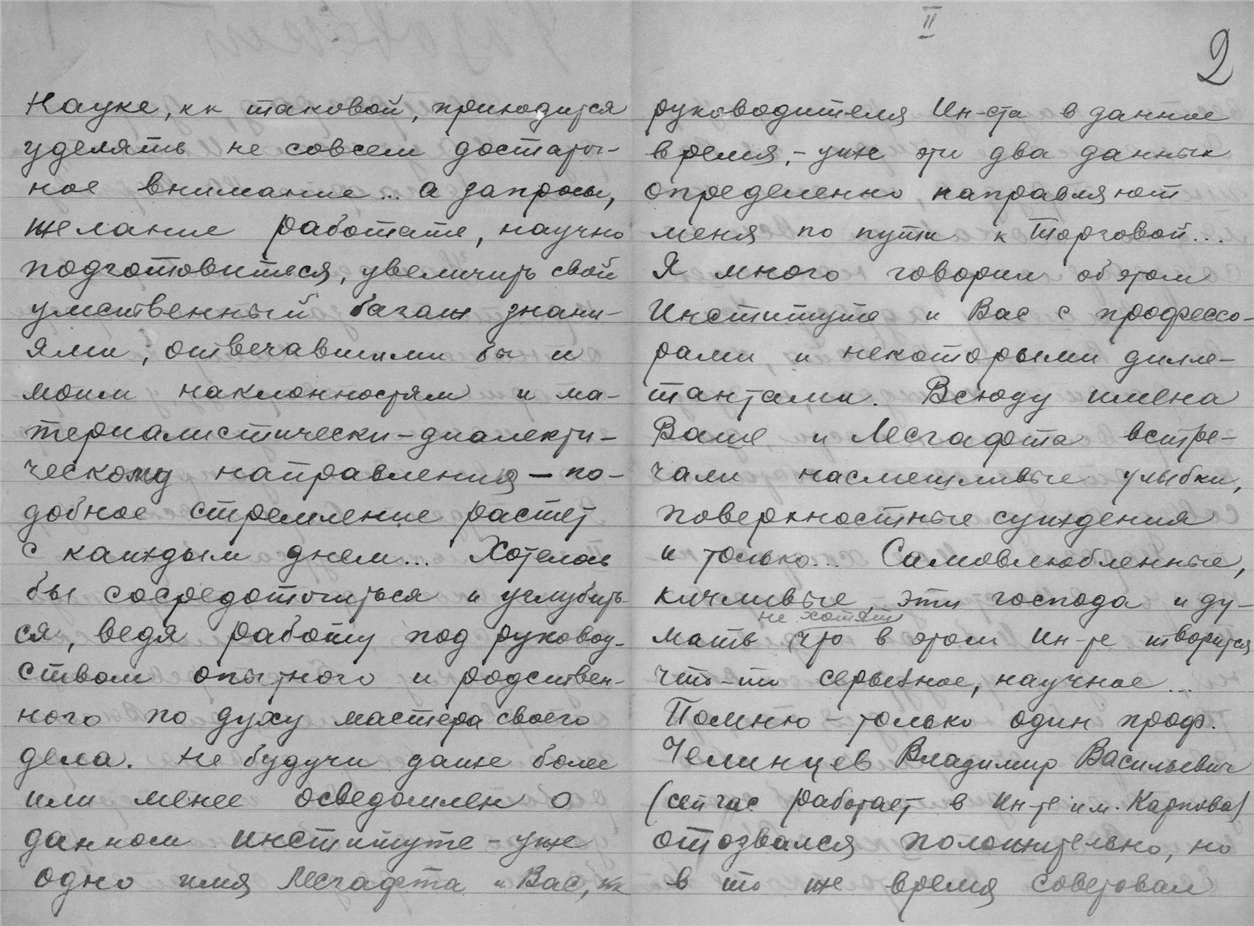 II
2
Науке, кк таковой, приходится
уделять не совсем достаточ-
ное внимание... а запросы,
желание работать, научно
подготовиться, увеличить свой
умственный багаж знани-
ями, отвечавшими бы и
моим наклонностям и ма-
териалистически-диалекти-
ческому направлению – по-
добное стремление растет
с каждым днем... Хотелось
бы сосредоточиться и углубить-
ся, ведя работу под руковод-
ством опытного и родствен-
ного по духу мастера своего
дела. Не будучи даже более
или менее осведомлен о
данном институте – уже
одно имя Лесгафта и Вас,
руководителя Ин-та в данное
время, – уже эти два данных
определенно направляют
меня по пути к Торговой...
Я много говорил об этом
Институте и Вас с профессо-
рами и некоторыми дилле-
тантами. Всюду имена
Ваше и Лесгафта встре-
чали насмешливые улыбки,
поверхностные суждения
и только... Самовлюбленные,
кичливые, эти господа и ду-
не хотят
мать что в этом Ин-те творится
что-то серьезное, научное...
Помню – только один проф.
Челинцев Владимир Васильевич
(сейчас работает в Ин-те им. Карпова)
отозвался положительно, но
в то же время советовал